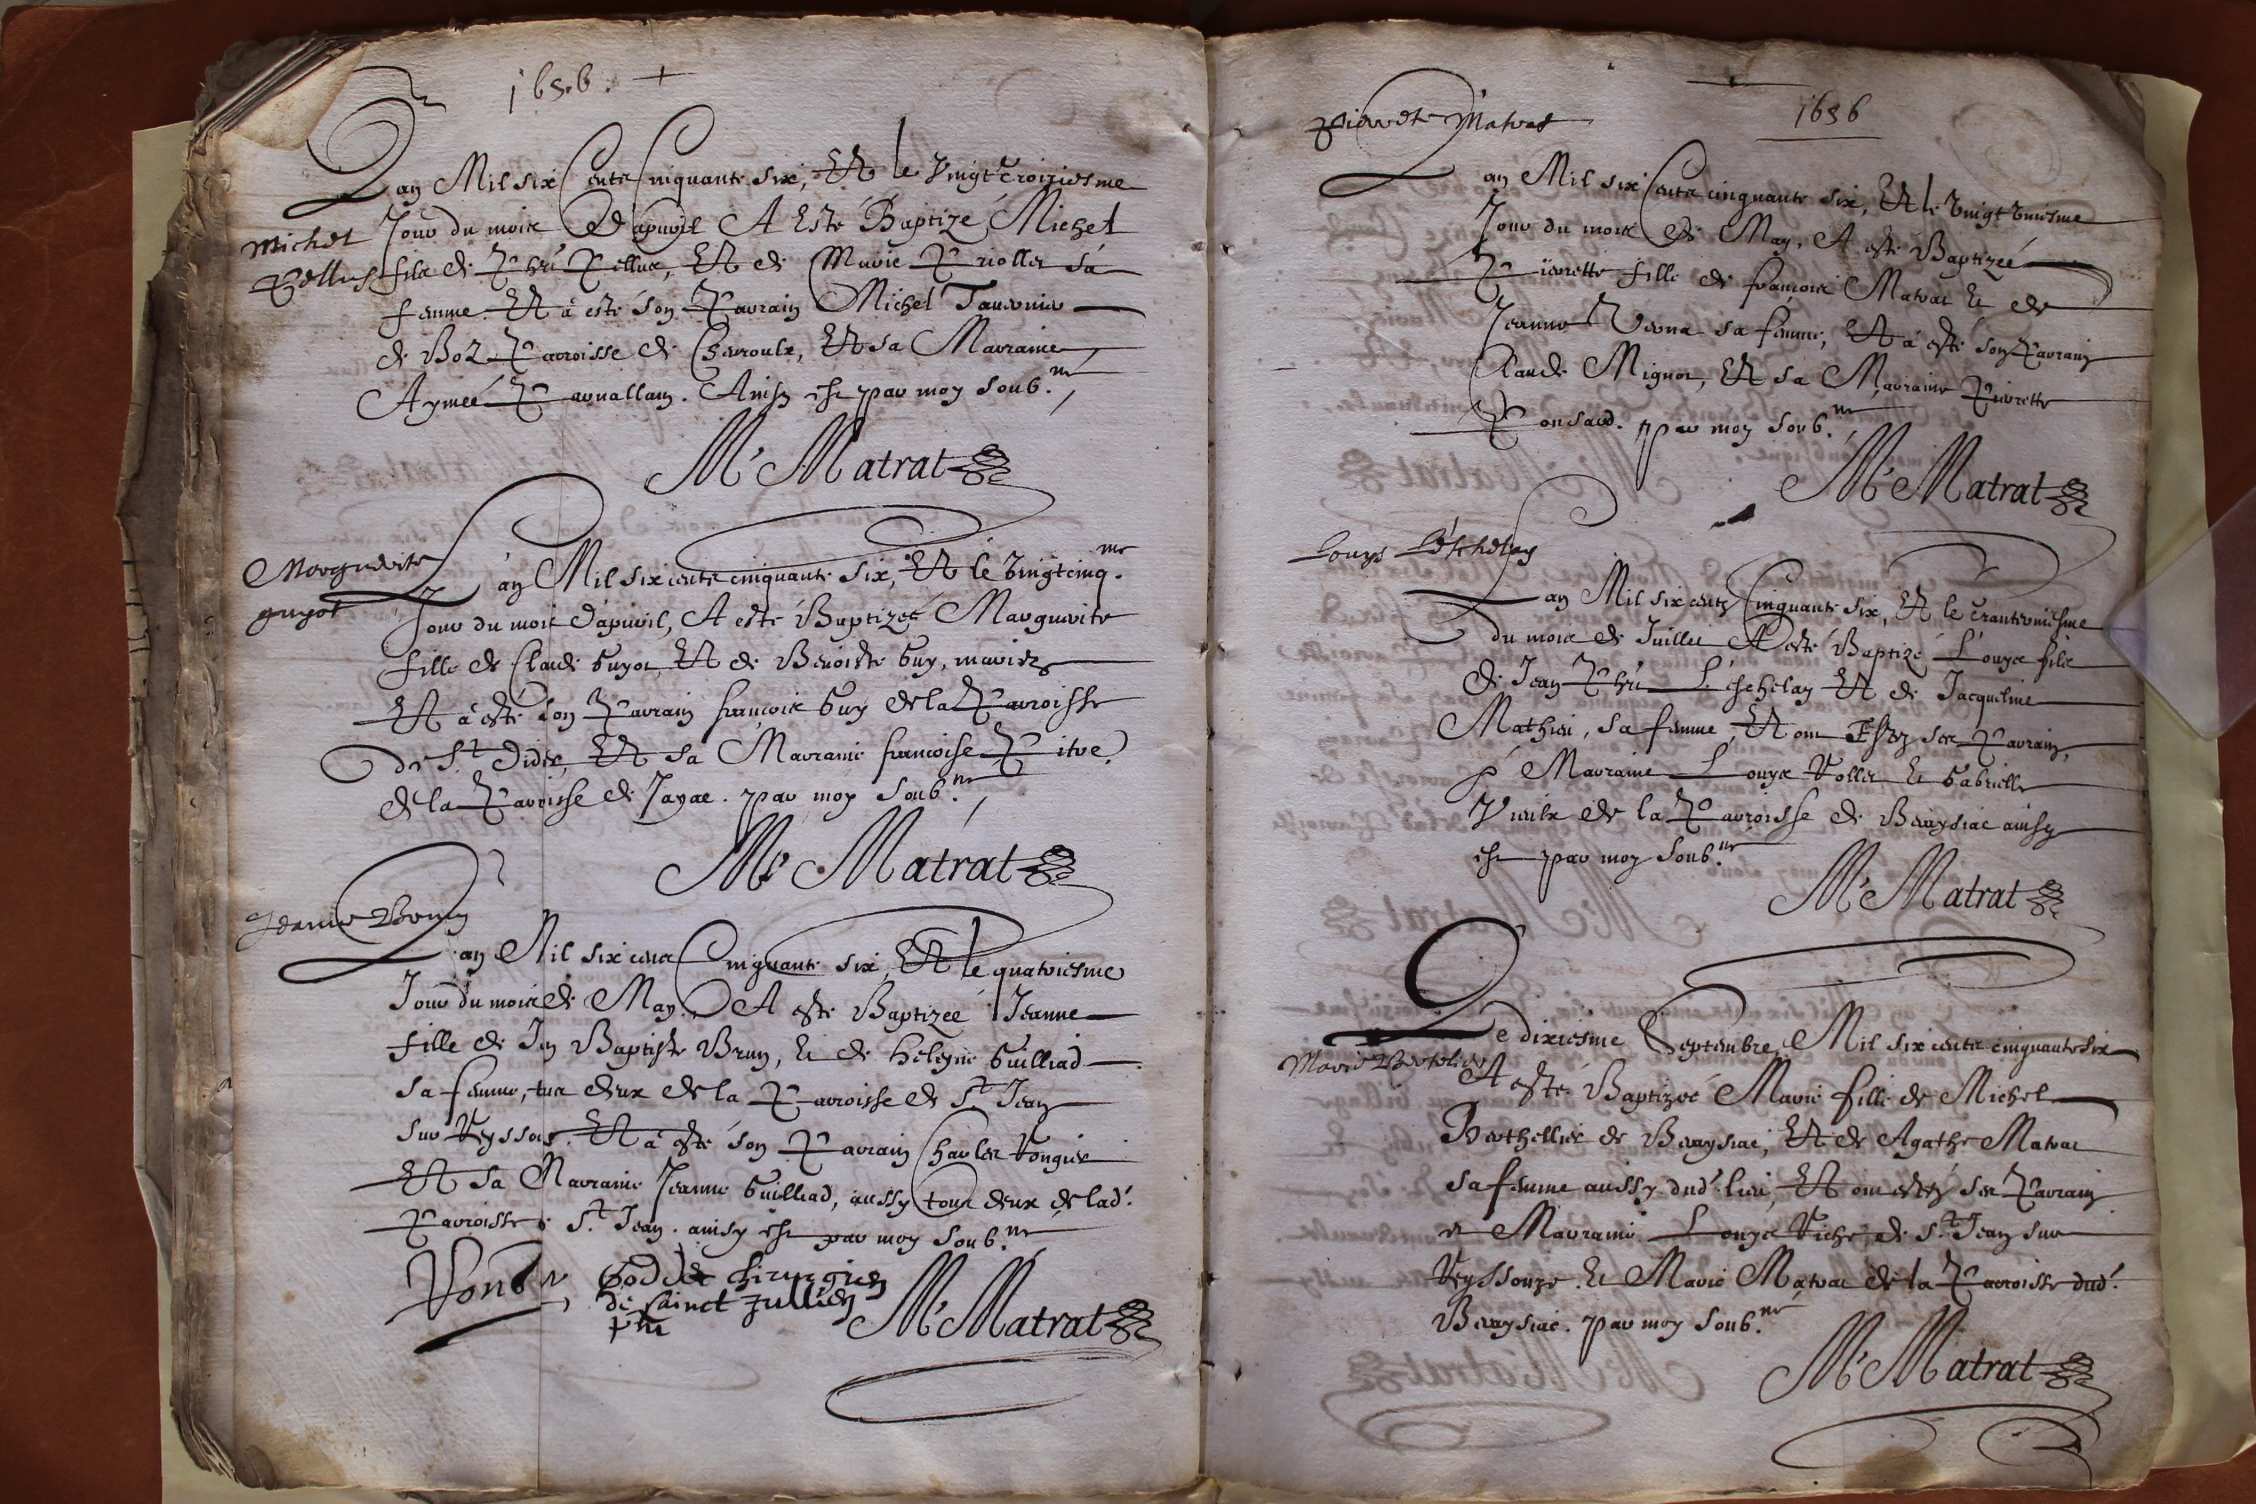 1656. +
Lan Mil six Cents Cinquante six, Et le Vingt troiziesme
Michel Jour du mois D'apuril A Esté Baptizé Michel
fils de Et de Marie sa
femme Et a esté son Parrain Michel Tauernier
de Boz Parroisse de Et sa Marraine
Aymeé Ainsy est par moy soub.né
M Matrat
Marguerite Lan Mil six cents cinquante six, Et le vingtcinq.me
guyot Jour du mois d'apuril, A esté Baptizeé Marguerite
fille de Claude Guyot, Et de Benoiste Guy, mariez
Et a esté son Parrain francois Guy de la Parroisse
de St Didier, Et sa Marraine francoise Pitre
de la Parroisse de Jayac. par moy soub.né
M Matrat
Jeanne Brun
Lan Mil six cents Cinquante six, Et le quatriesme
Jour du mois de May. A esté Baptizeé Jeanne
fille de Jean Baptiste Brun, Et de heleyne Guilliad
sa femme, tous deux de la Parroisse de St Jean
sur Reyssouse. Et a esté son Parrain Charles Rongier
Et sa Marraine Jeanne Guilliad, aussy tous deux de lad.
Parroisse St Jean. ainsy est par moy soub.né
chirurgien
de sainct Jullien
M Matrat
Pierrete Matrat 1656
Lan Mil six Cents cinquante six, Et le vingt
Jour du mois de May, A esté Baptizeé
Pierrette fille de francois Matrat Et de
Jeanne sa femme, Et a esté son Parrain
Claude Mignot, Et sa Marraine Pierrette
Ponsard. par moy soub.né
M Matrat
Louys L'eschelay
Lan Mil six cents Cinquante six, Et le
du mois de Juillet A esté Baptizé Louys fils
de Jean L'eschelay Et de Jacqueline
Mathieu, sa femme, Et ont Estez ses Parrain,
& Marraine Louys Rollet Et Gabrielle
de la Parroisse de Bereysiac ainsy
est par moy soub.né
M Matrat
Le dixiesme Septembre, Mil six cents cinquante six
Marie Bertelier A esté Baptizeé Marie fille de Michel
Berthellier de Bereysiac, Et de Agathe Matrat
sa femme aussy dud. lieu, Et ont estez ses Parrain
et Marraine Louys Riche de St Jean sur
Reyssouze. Et Marie Matrat de la Parroisse dud.
Bereysiac. par moy soub.né
M Matrat